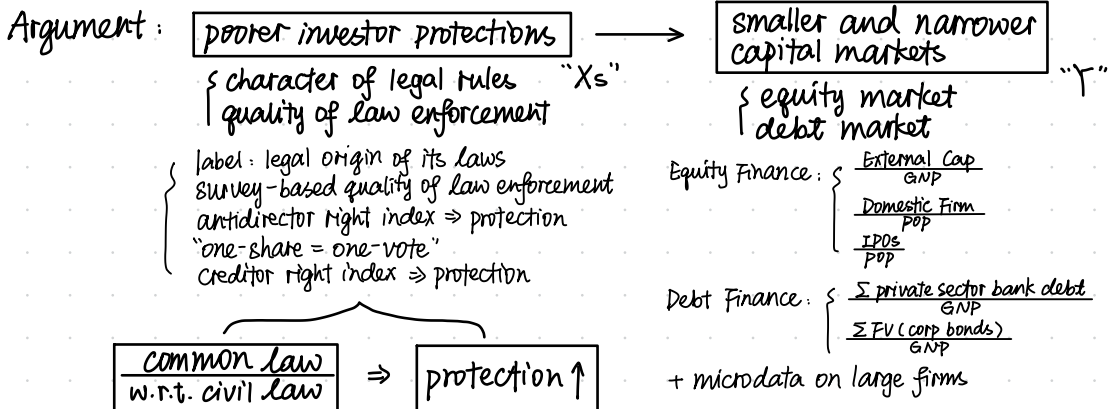 Argument : poorer investor protections → smaller and narrower
capital markets
{ character of legal rules "Xs"
quality of law enforcement
{ equity market "Y"
debt market
{ label : legal origin of its laws
survey-based quality of law enforcement
antidirector right index ⇒ protection
"one-share = one-vote"
creditor right index ⇒ protection
Equity Finance : { External Cap / GNP
Domestic Firm / POP
IPOs / POP
Debt Finance : { Σ private sector bank debt / GNP
Σ FV (corp bonds) / GNP
+ microdata on large firms
common law
w.r.t. civil law ⇒ protection ↑